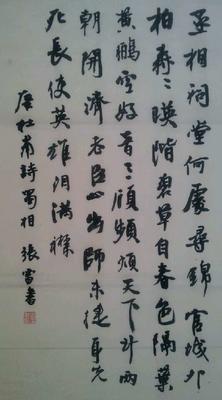 丞相祠堂何處尋錦官城外
柏森々映階碧草自春色隔葉
黃鸝空好音三顧頻煩天下計兩
朝開濟老臣心出師未捷身先
死長使英雄泪滿襟
唐杜甫詩蜀相 張富書